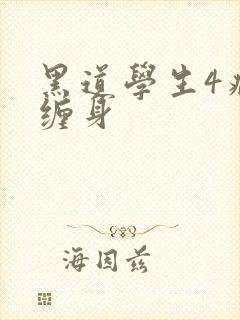 黑道學生4
缠身
海因兹